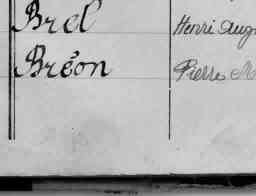 Brel Henri Aug
Bréon Pierre M